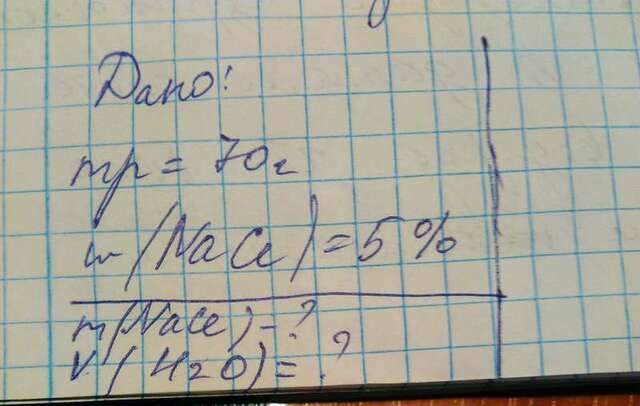 Дано:
mр = 70г
w(NaCl) = 5%
m(NaCl) - ?
V(H2O) = ?